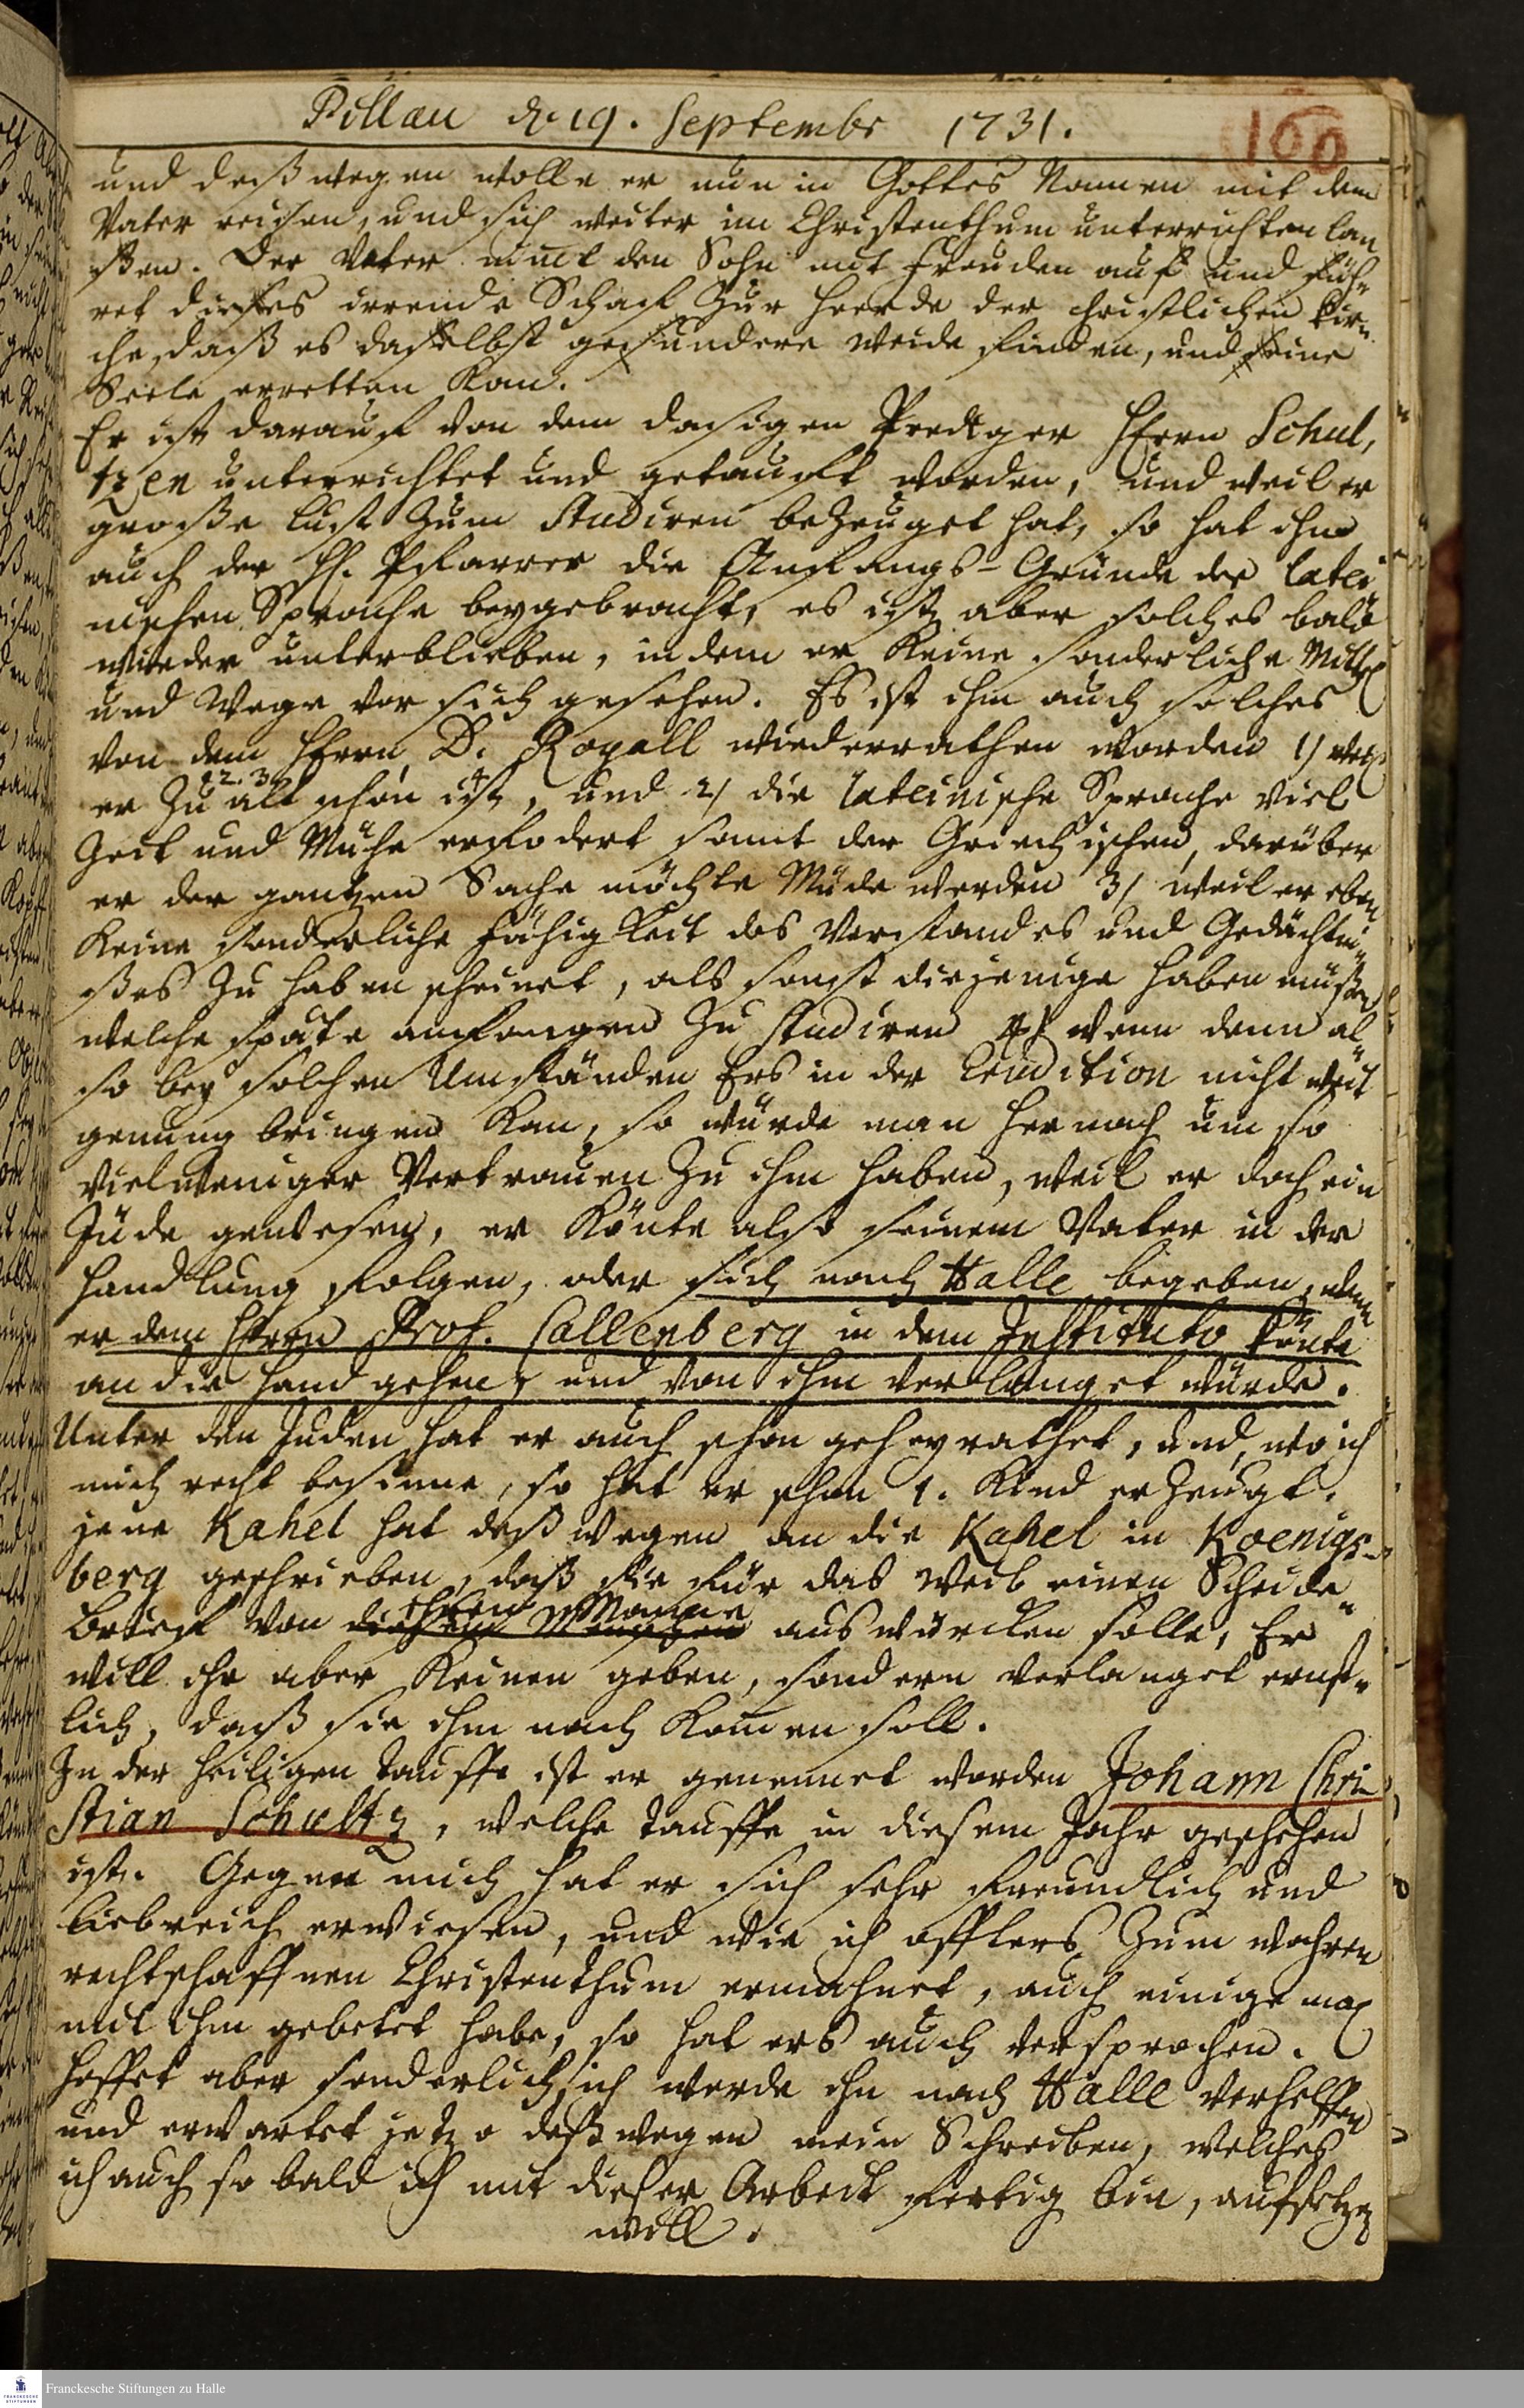 Pillau d. 19. Septembr 1731.
100
und deßwegen wolle er nun in Gottes Namen mit dem
Vater reisen, und sich weiter im Christenthum unterrichten laß
ßen. Der Vater nimt den Sohn mit Freuden auf und füh-
ret dieses irrende Schaf zur Heerde der christlichen Kir-
che, daß es daselbst gesundere Weide finden, und seine
Seele erretten kan.
Er ist darauf von dem dasigen Prediger Herrn Schul,
tzen unterrichtet und getaufft worden, und weil er
große Lust zum Studiren bezeuget hat, so hat ihm
auch der H. Pfarrer die Anfangs-Gründe der latei
nischen Sprache beygebracht, es ist aber solches bald
wieder unterblieben, indem er keine sonderliche Mittel
und Wege vor sich gesehen. Es ist ihm auch solches
von dem Herrn D. Rogall wiederrathen worden 1) weil
er zu alt schon ist, und 2) die lateinische Sprache viel
Zeit und Mühe erfodert samt der Griechischen, darüber
er der gantzen Sache möchte Müde werden 3) weil er eben
keine sonderliche Fähigkeit des Verstandes und Gedächtni-
ßes zu haben scheinet, als sonst diejenige haben müßen
welche späte anfangen zu studiren 4) wenn denn al-
so bey solchen Umständen Ers in der Erudition nicht weit
genung bringen kan, so würde man hernach um so
vielweniger Vertrauen zu ihm haben, weil er doch ein
Jude gewesen, er könte also seinem Vater in der
Handlung folgen, oder sich nach Halle begeben, wenn
er dem Herrn Prof. Callenberg in dem Instituto könte
an die Hand gehen, und von ihm verlanget würde.
Unter den Juden hat er auch schon geheyrathet, und, wo ich
mich recht besinne, so hat er schon 1. Kind erzeugt.
jene Kahel hat deßwegen an die Kahel in Koenigs-
berg geschrieben, daß sie für das Weib einen Scheide-
Brief von ihrem Manne auswürcken solle, Er
will ihr aber keinen geben, sondern verlanget ernst-
lich, daß sie ihm nach kommen soll.
In der heiligen Tauffe ist er genennet worden Johann Chri-
stian Schultz, welche Tauffe in diesem Jahr geschehen
ist. Gegen mich hat er sich sehr freundlich und
liebreich erwiesen, und wie ich öffters zum wahren
rechtschaffnen Christenthum ermahnet, auch einige mal
mit ihm gebetet habe, so hat ers auch versprochen.
hoffet aber sonderlich, ich werde ihn nach Halle verhelffen
und erwartet jetzo deßwegen mein Schreiben, welches
ich auch so bald ich mit dieser Arbeit fertig bin, aufsetzen
will.
Franckesche Stiftungen zu Halle